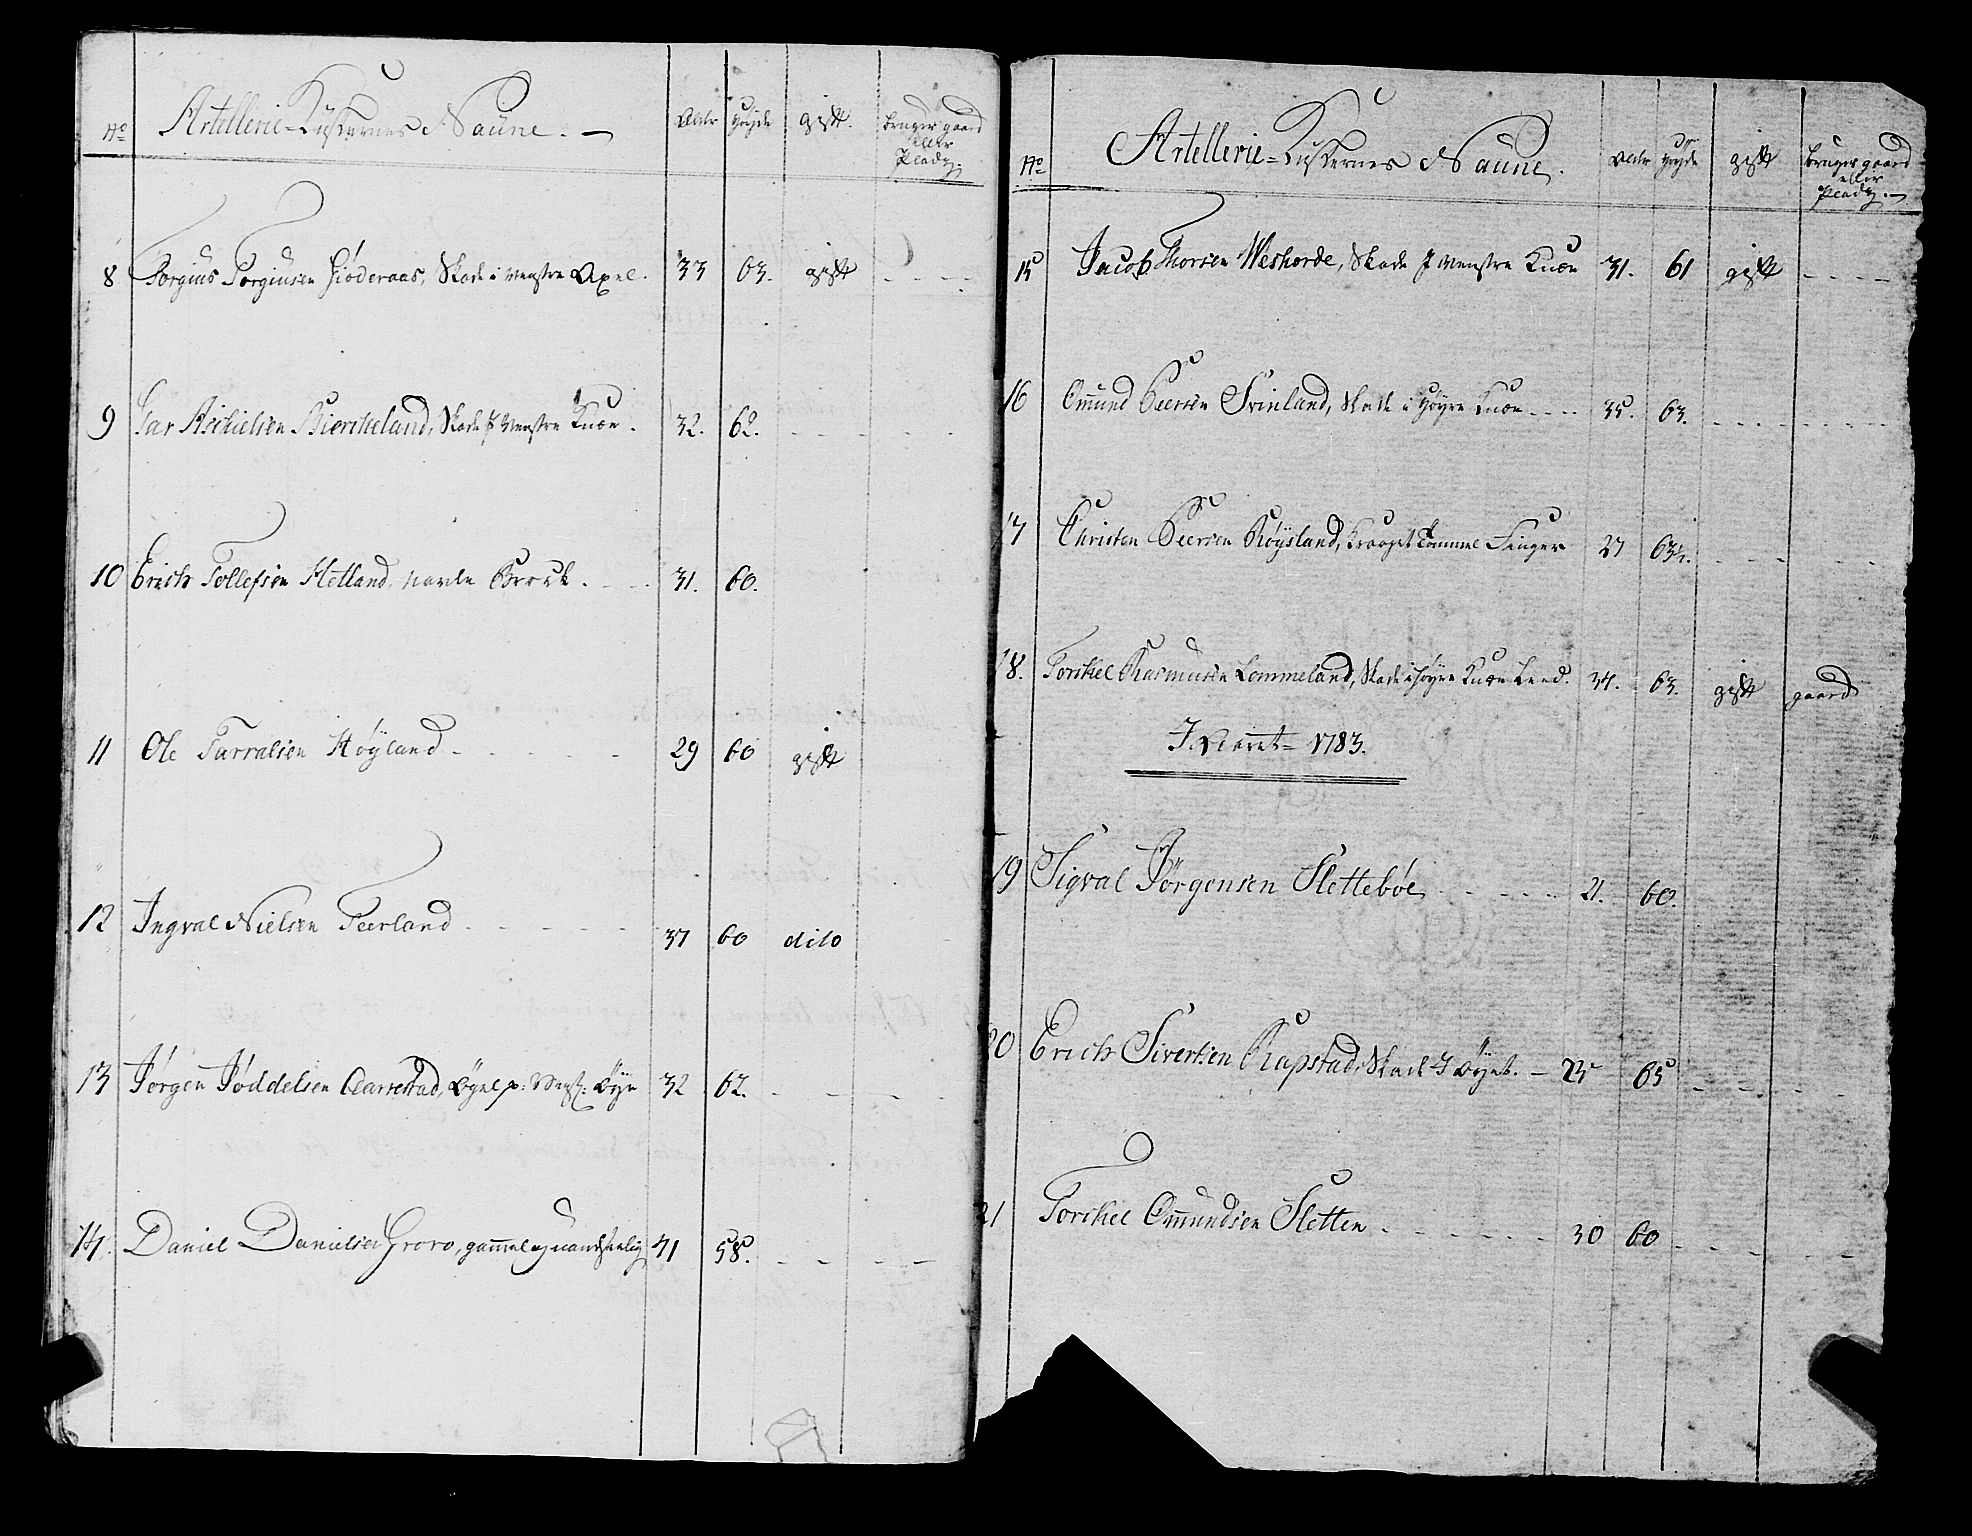 No Artellerie-Kuskernes Naune. — Alder Høyde gift. bruger gaard
eller
Plads.
8 Torgius Torgiusen Hioderaas, Skade i venstre Axel. 33 63. gift - - - -
9 Gar Aschielsen Bierckeland, Skade I Venstre Knæe. 32. 62. - - - -
10 Erich Tollefsen Hetland, navle Brock. - - - 31. 60.
11 Ole Tarralsen Høyland - - - - 29 60 gift
12 Ingval Nielsen Teerland - - - - 37 60 dito
13 Jørgen Jøddelsen Aarrestad, Øyel. p: Venst: Øye 32 62. - - - -
14. Daniel Danielsen Groro, gammel og uanseelig 41 58. - - - -
No Artellerie-Kuskernes Naune. Alder Høyde gift bruger gaard
eller
Plads. —
15 Jacob Thorsen Weshorde, Skade I Venstre Knæe 31. 61 gift - - - -
16 Ommund Peersen Svinland, Skade i Høyre Knæe - - - - 35. 63. - - - -
17 Christen Peersen Røysland, Kroget Tommel Finger 27 63½. - - - -
18. Torchel Rasmusen Lommeland, Skade i Høyre Knæe Leed. 34. 63. gift gaard
I Aaret 1783.
19 Sigval Jørgensen Slettebøe - - - - 21. 60.
20 Erich Sivertsen Rapstad, Skade I Øyet. — 25 65 - - - -
21 Torchel Ommundsen Sletten - - - - 30 60 - - - -